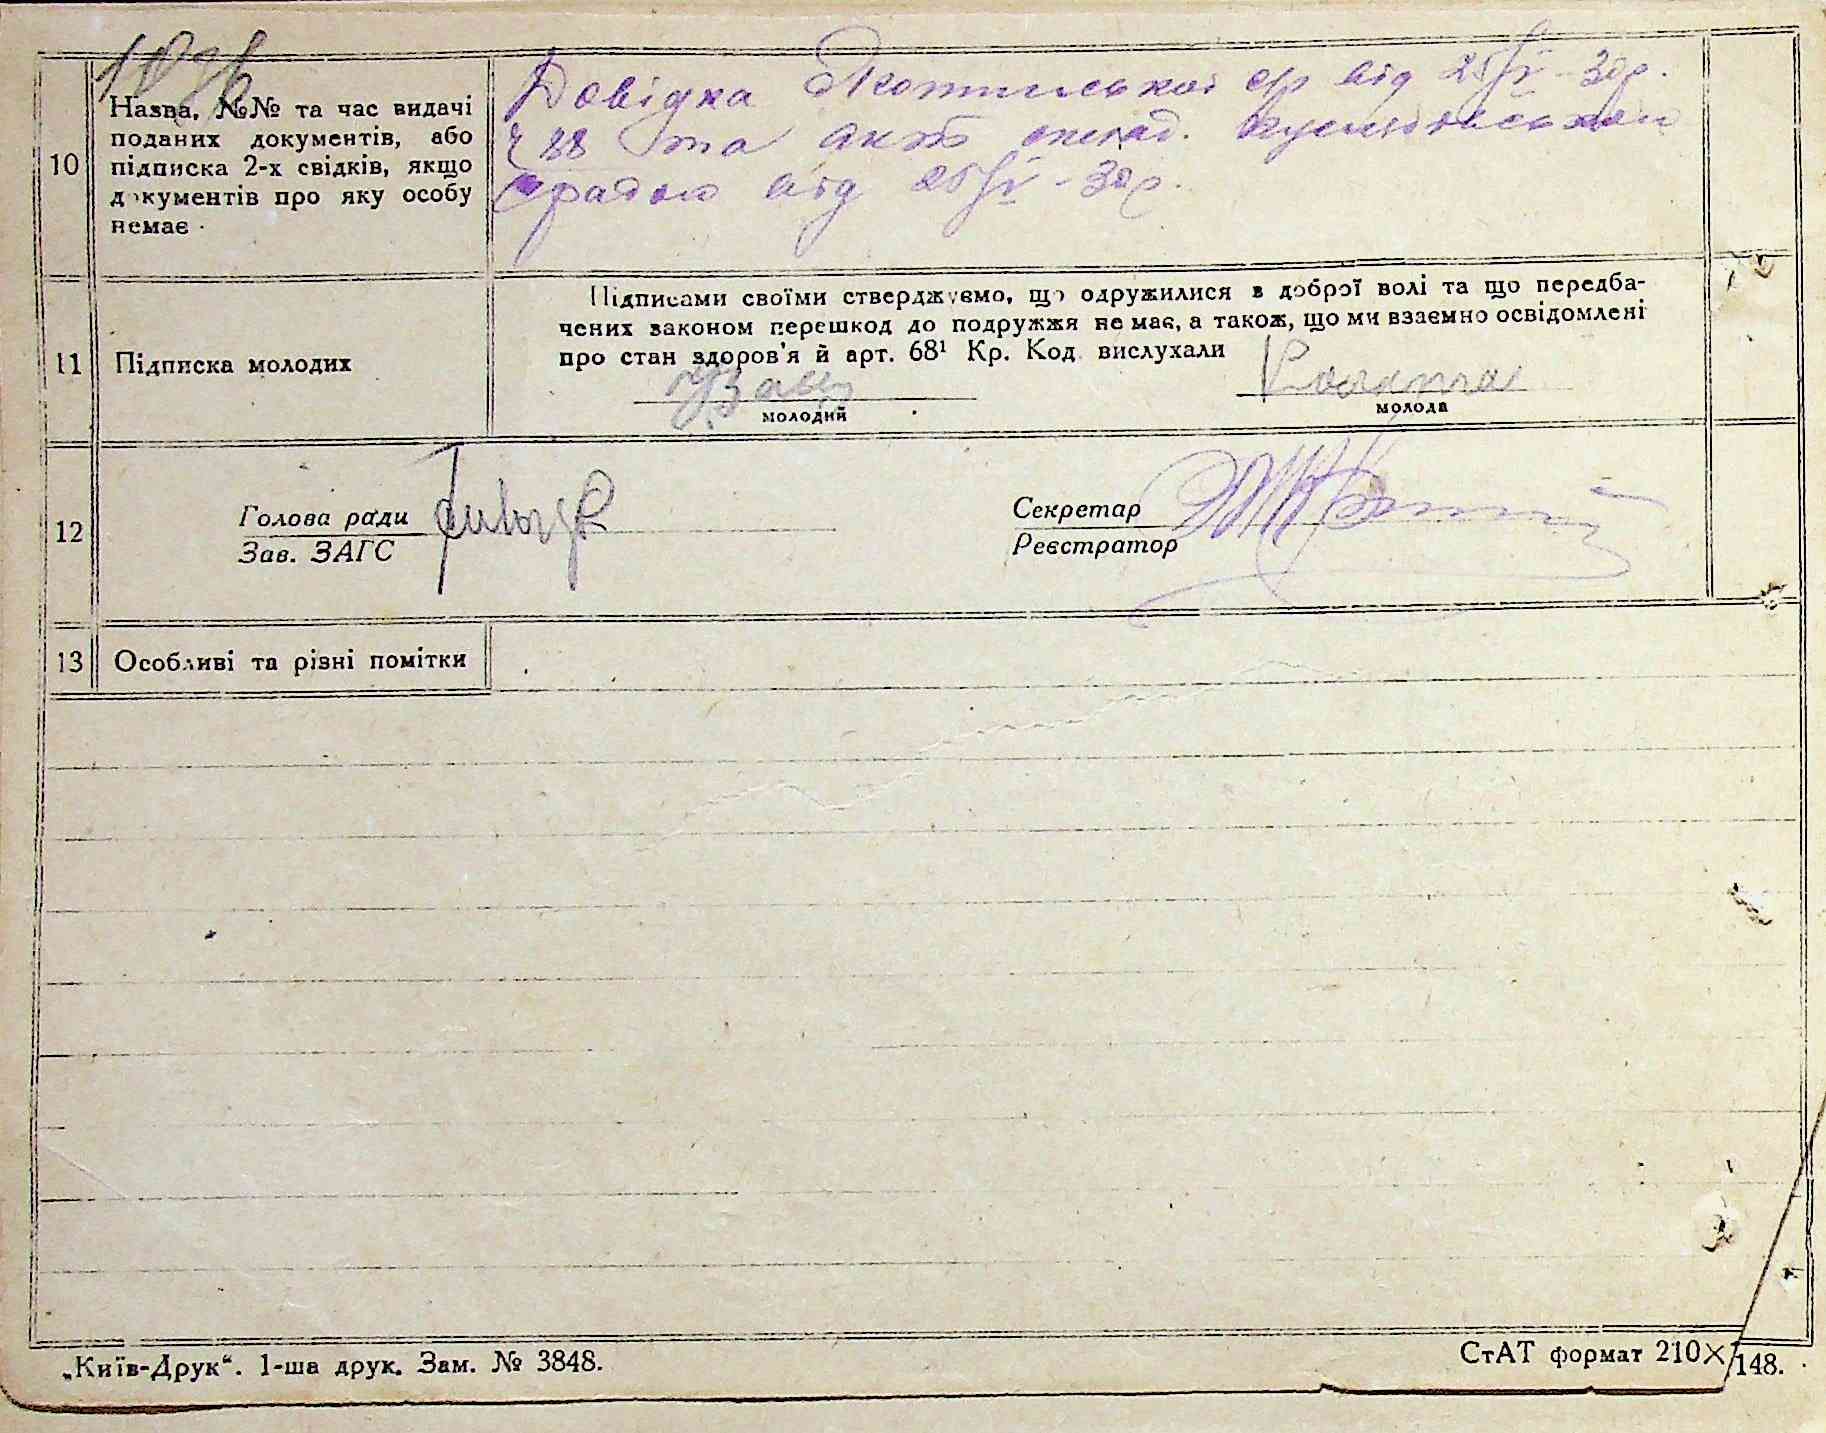 Назва, №№ та час видачі
поданих документів, або
10 підписка 2-х свідків, якщо
документів про яку особу
немає
Довідка від 25/IV-30р.
ч 88 та акт склад.
радою від 25/IV-30р.
Підписами своїми стверджуємо, що одружилися в доброї волі та що передба-
чених законом перешкод до подружжя не має, а також, що ми взаємно освідомлені
11 Підписка молодих
про стан здоров'я й арт. 68¹ Кр. Код. вислухали
молодий молода
12
Голова ради
Зав. ЗАГС
Секретар
Реєстратор
13 Особливі та різні помітки
„Київ-Друк“. 1-ша друк. Зам. № 3848.
СтАТ формат 210×148.